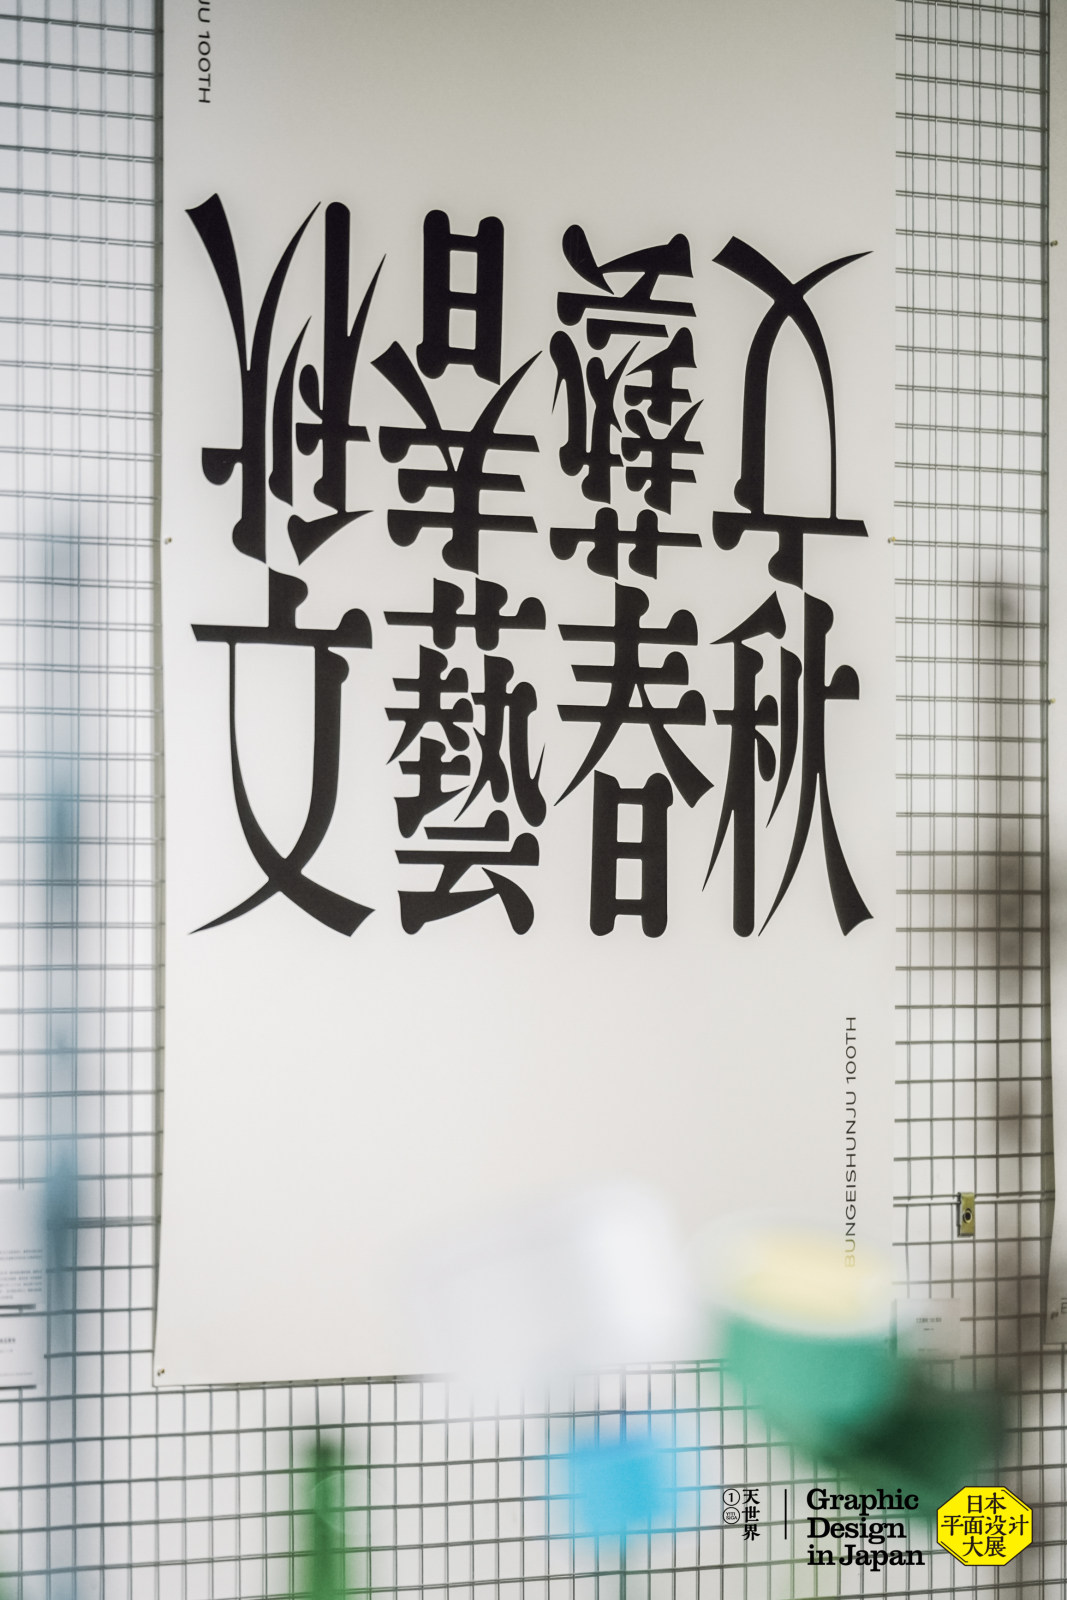 JU 100TH
文藝春秋
文藝春秋
BUNGEISHUNJU 100TH
天世界
Graphic
Design
in Japan
日本
平面设计
大展